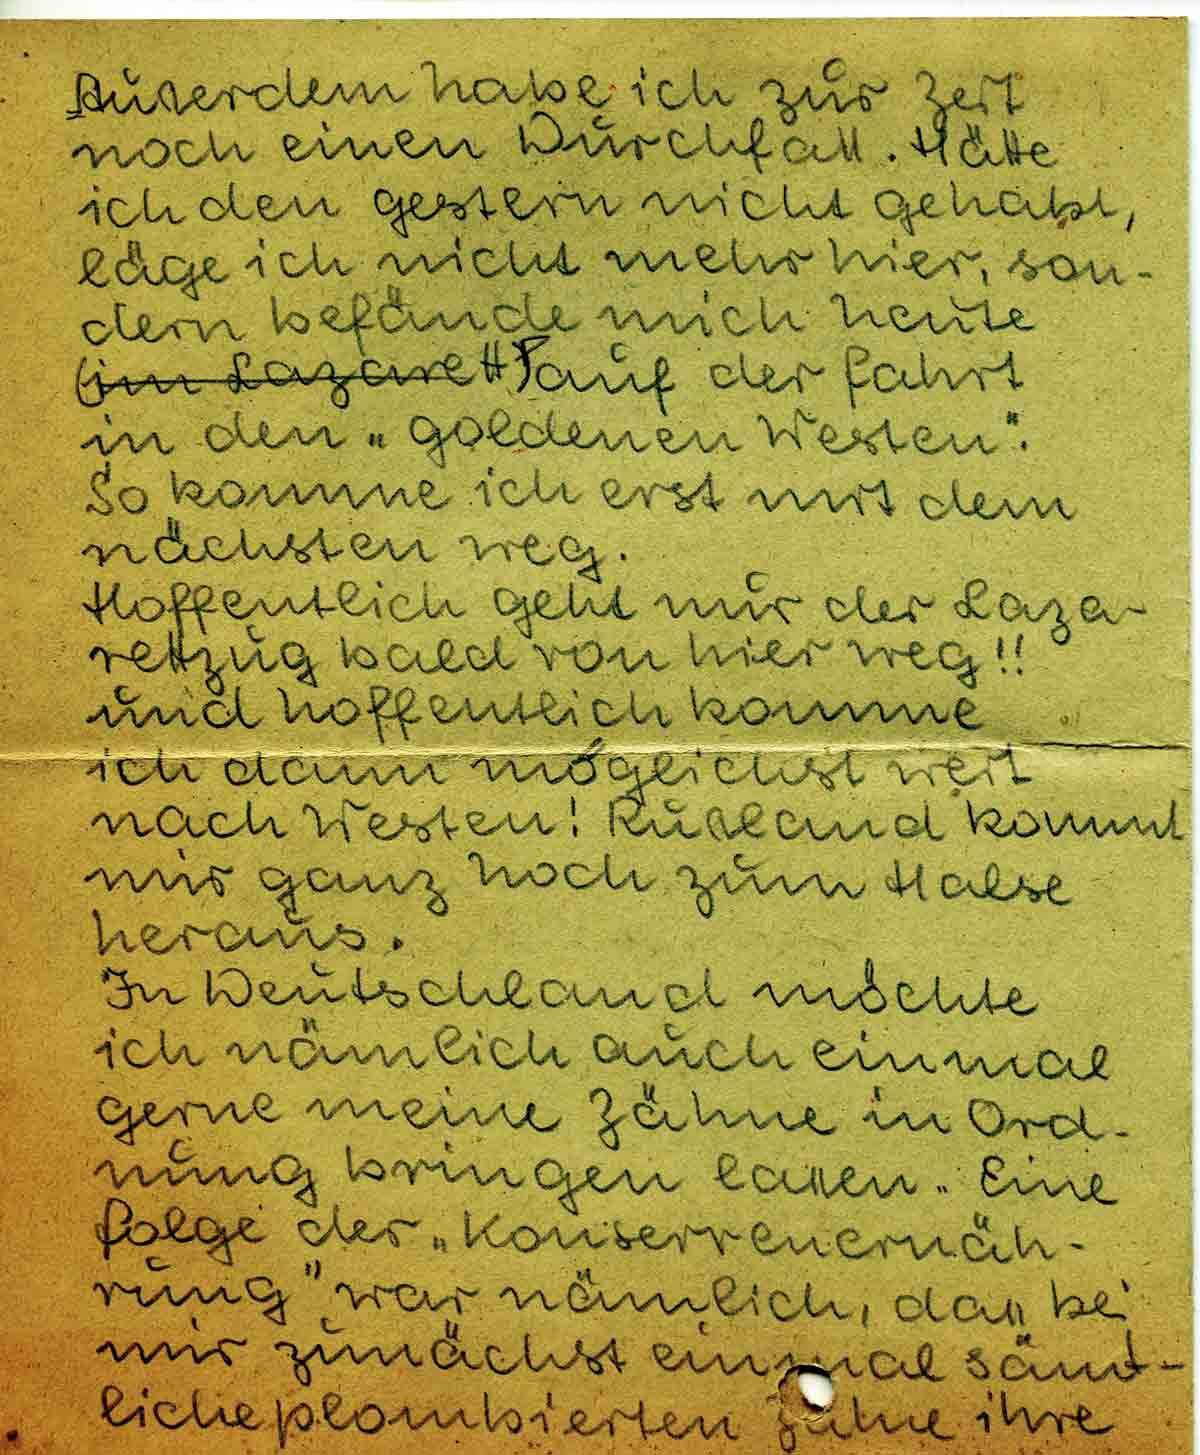 Ausserdem habe ich zur Zeit
noch einen Durchfall. Hätte
ich den gestern nicht gehabt,
läge ich nicht mehr hier, son-
dern befände mich heute
(im Lazarett) auf der Fahrt
in den „goldenen Westen".
So komme ich erst mit dem
nächsten weg.
Hoffentlich geht nur der Laza-
rettzug bald von hier weg!!
und hoffentlich komme
ich dann möglichst weit
nach Westen! Russland kommt
mir ganz hoch zum Halse
heraus.
In Deutschland möchte
ich nämlich auch einmal
gerne meine Zähne in Ord-
nung bringen lassen. Eine
Folge der „Konservenernäh-
rung" war nämlich, dass bei
mir zunächst einmal sämt-
liche plombierten Zähne ihre